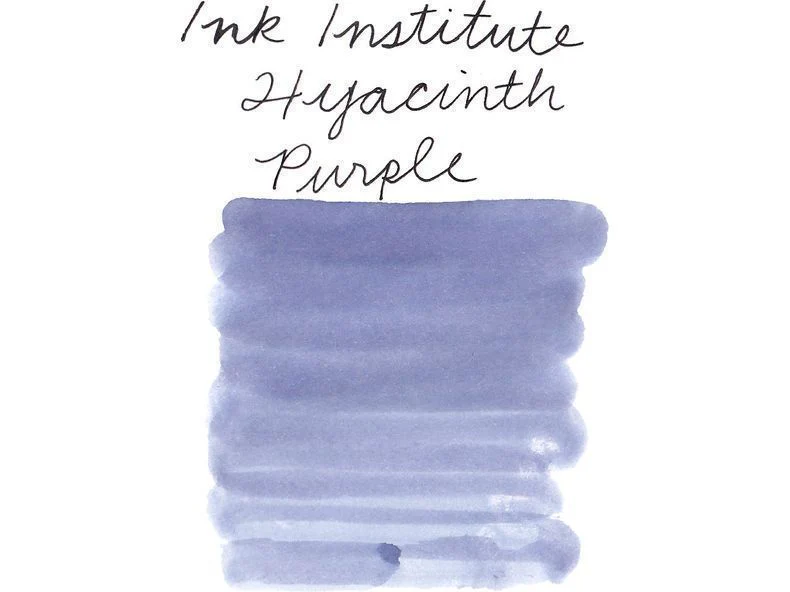 Ink Institute
Hyacinth
Purple